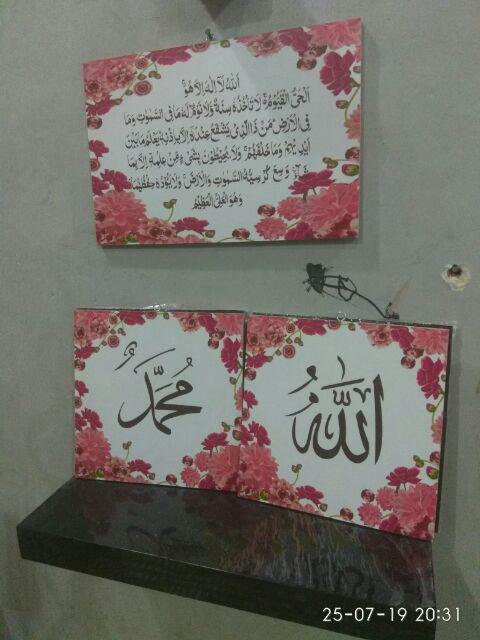 اَللّٰهُ لَآ اِلٰهَ اِلَّا هُوَ ۚ
اَلْحَيُّ الْقَيُّوْمُ ۚ لَا تَأْخُذُهٗ سِنَةٌ وَّلَا نَوْمٌ ۗ لَهٗ مَا فِى السَّمٰوٰتِ وَمَا
فِى الْاَرْضِ ۗ مَنْ ذَا الَّذِيْ يَشْفَعُ عِنْدَهٗٓ اِلَّا بِاِذْنِهٖ ۗ يَعْلَمُ مَا بَيْنَ
اَيْدِيْهِمْ وَمَا خَلْفَهُمْ ۚ وَلَا يُحِيْطُوْنَ بِشَيْءٍ مِّنْ عِلْمِهٖٓ اِلَّا بِمَا
شَآءَ ۚ وَسِعَ كُرْسِيُّهُ السَّمٰوٰتِ وَالْاَرْضَ ۚ وَلَا يَـُٔوْدُهٗ حِفْظُهُمَا ۚ
وَهُوَ الْعَلِيُّ الْعَظِيْمُ
مُحَمَّدٌ
اللّٰهُ
25-07-19 20:31